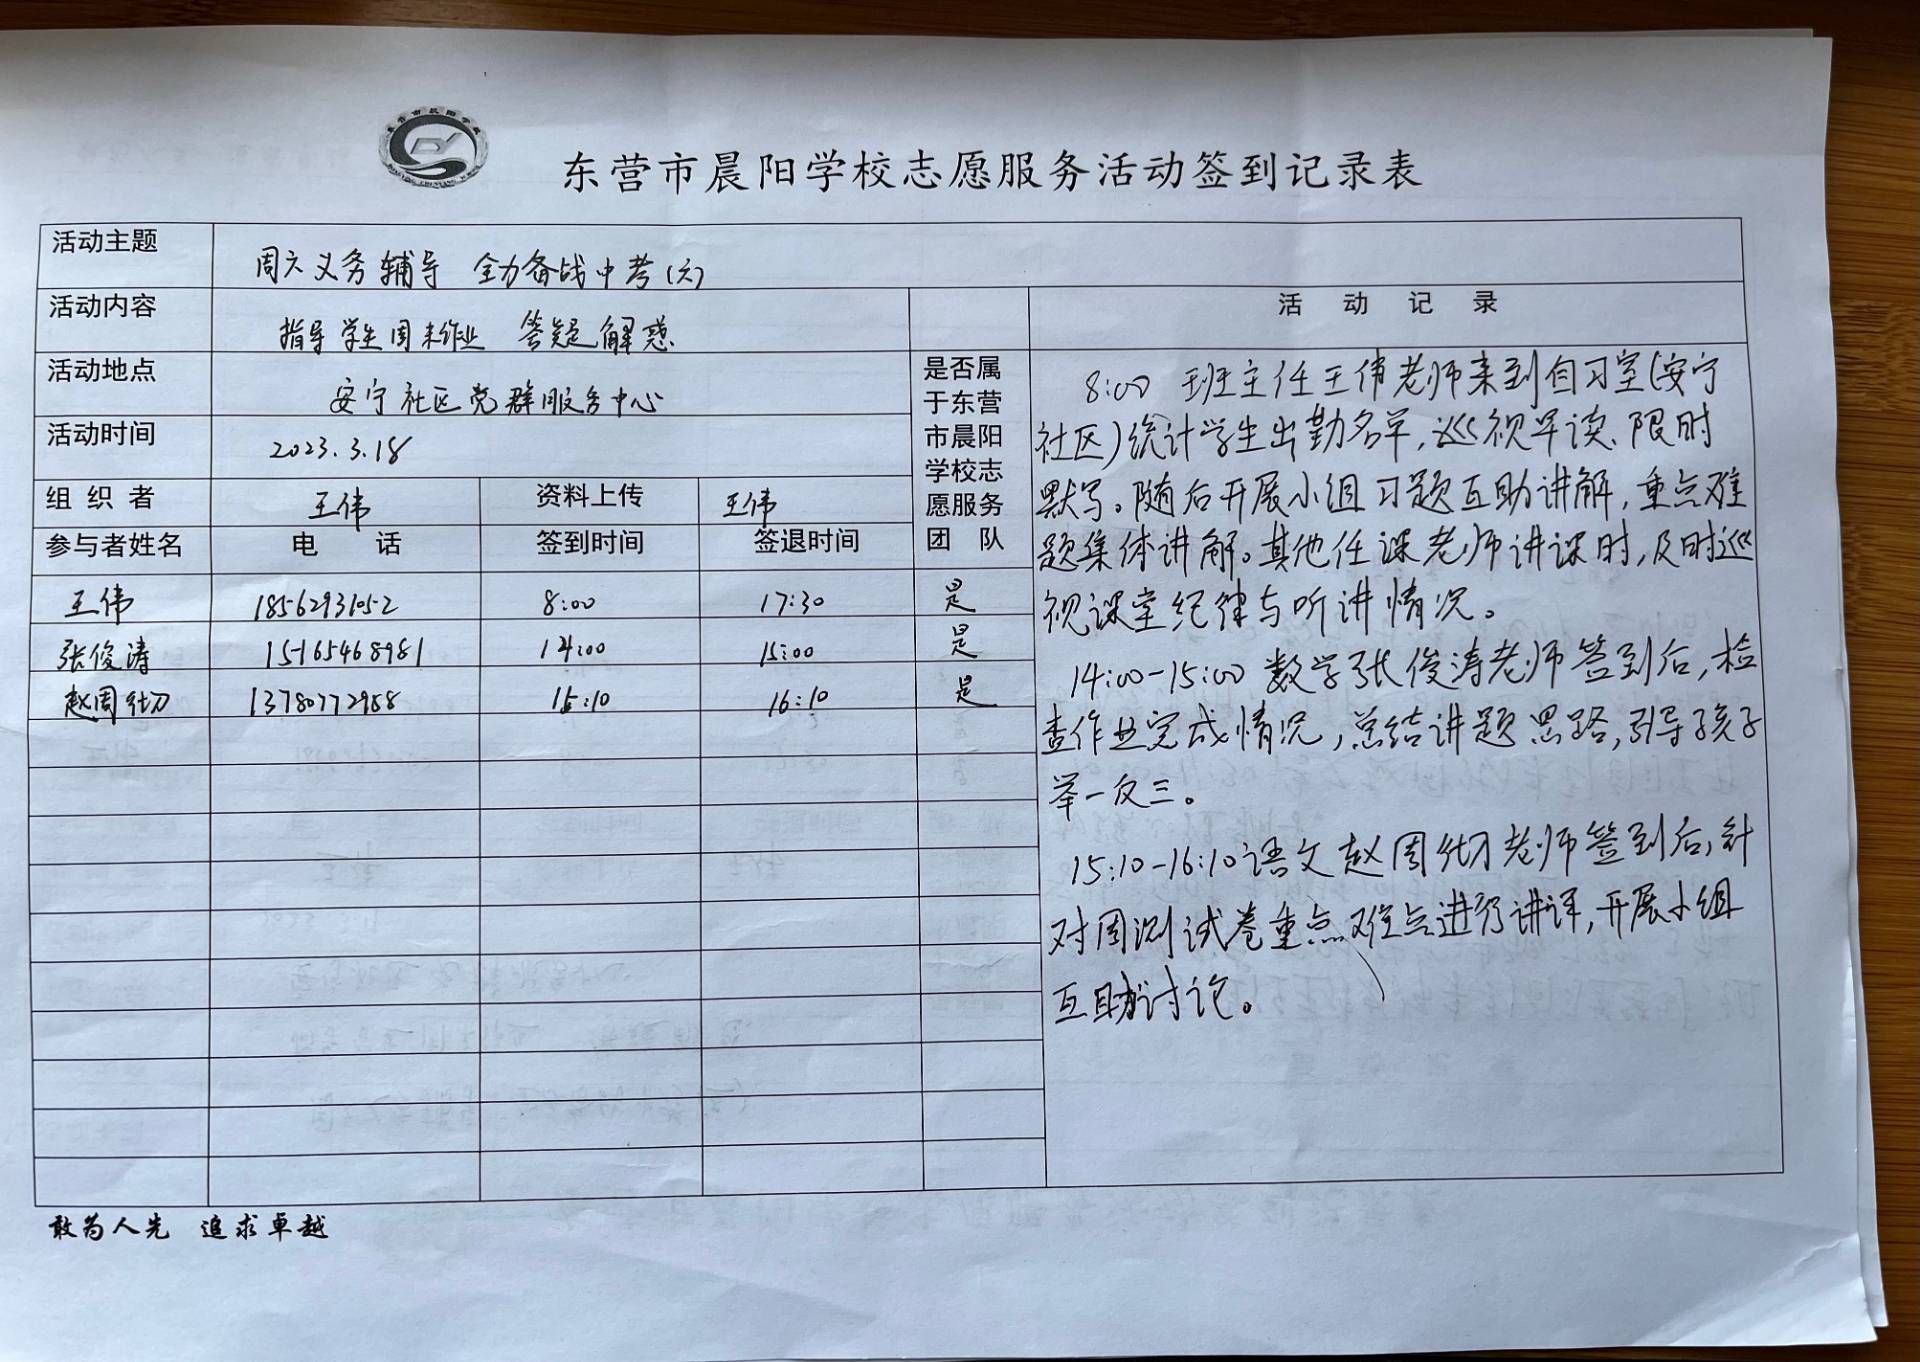 东营市晨阳学校志愿服务活动签到记录表
活动主题 周六义务辅导 全力备战中考(六)
活动内容 指导学生周末作业 答疑解惑
活动地点 安宁社区党群服务中心
活动时间 2023.3.18
组织者 王伟 资料上传 王伟
参与者姓名 电话 签到时间 签退时间
是否属
于东营
市晨阳
学校志
愿服务
团队
王伟 18562931052 8:00 17:30 是
张俊涛 15165468981 14:00 15:00 是
赵周 13780772958 15:10 16:10 是
活动记录
8:00 班主任王伟老师来到自习室(安宁
社区)统计学生出勤名单,巡视早读、限时
默写。随后开展小组习题互助讲解,重点难
题集体讲解。其他任课老师讲课时,及时巡
视课堂纪律与听讲情况。
14:00-15:00 数学张俊涛老师签到后,检
查作业完成情况,总结讲题思路,引导孩子
举一反三。
15:10-16:10 语文赵周 老师签到后,针
对周测试卷重点难点进行讲评,开展小组
互助讨论。
敢为人先 追求卓越